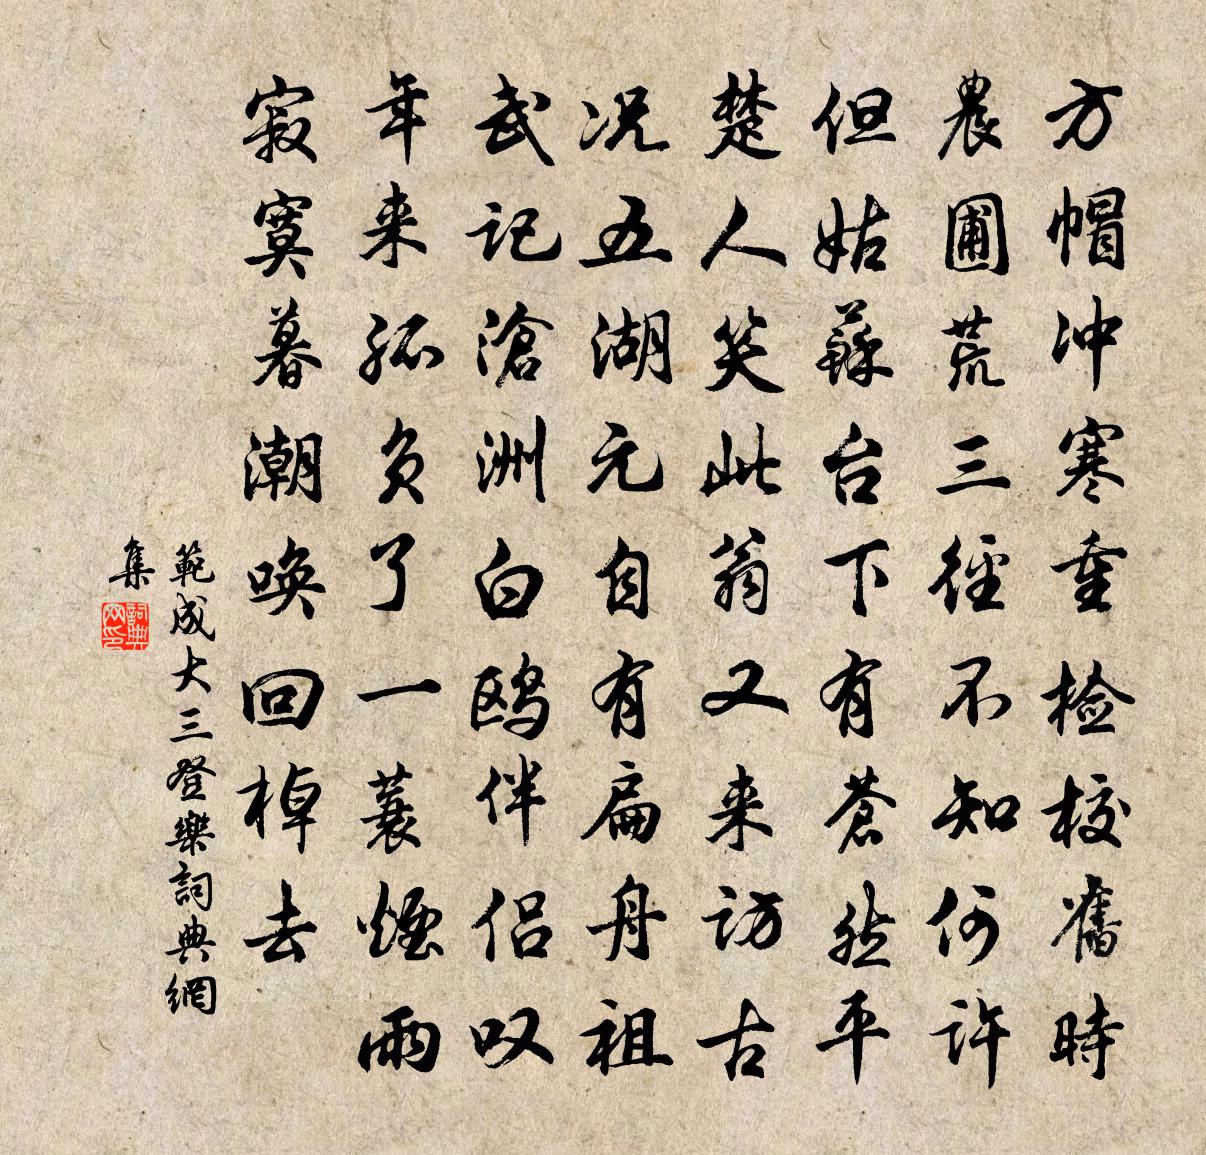 方帽冲寒重检校舊時
農圃荒三徑不知何許
但姑蘇台下有蒼然平
楚人笑此翁又来訪古
况五湖元自有扁舟祖
武记滄洲白鸥伴侣叹
年来孤负了一蓑煙雨
寂寞暮潮唤回棹去
範成大三登樂詞典網
集
詞典
网印